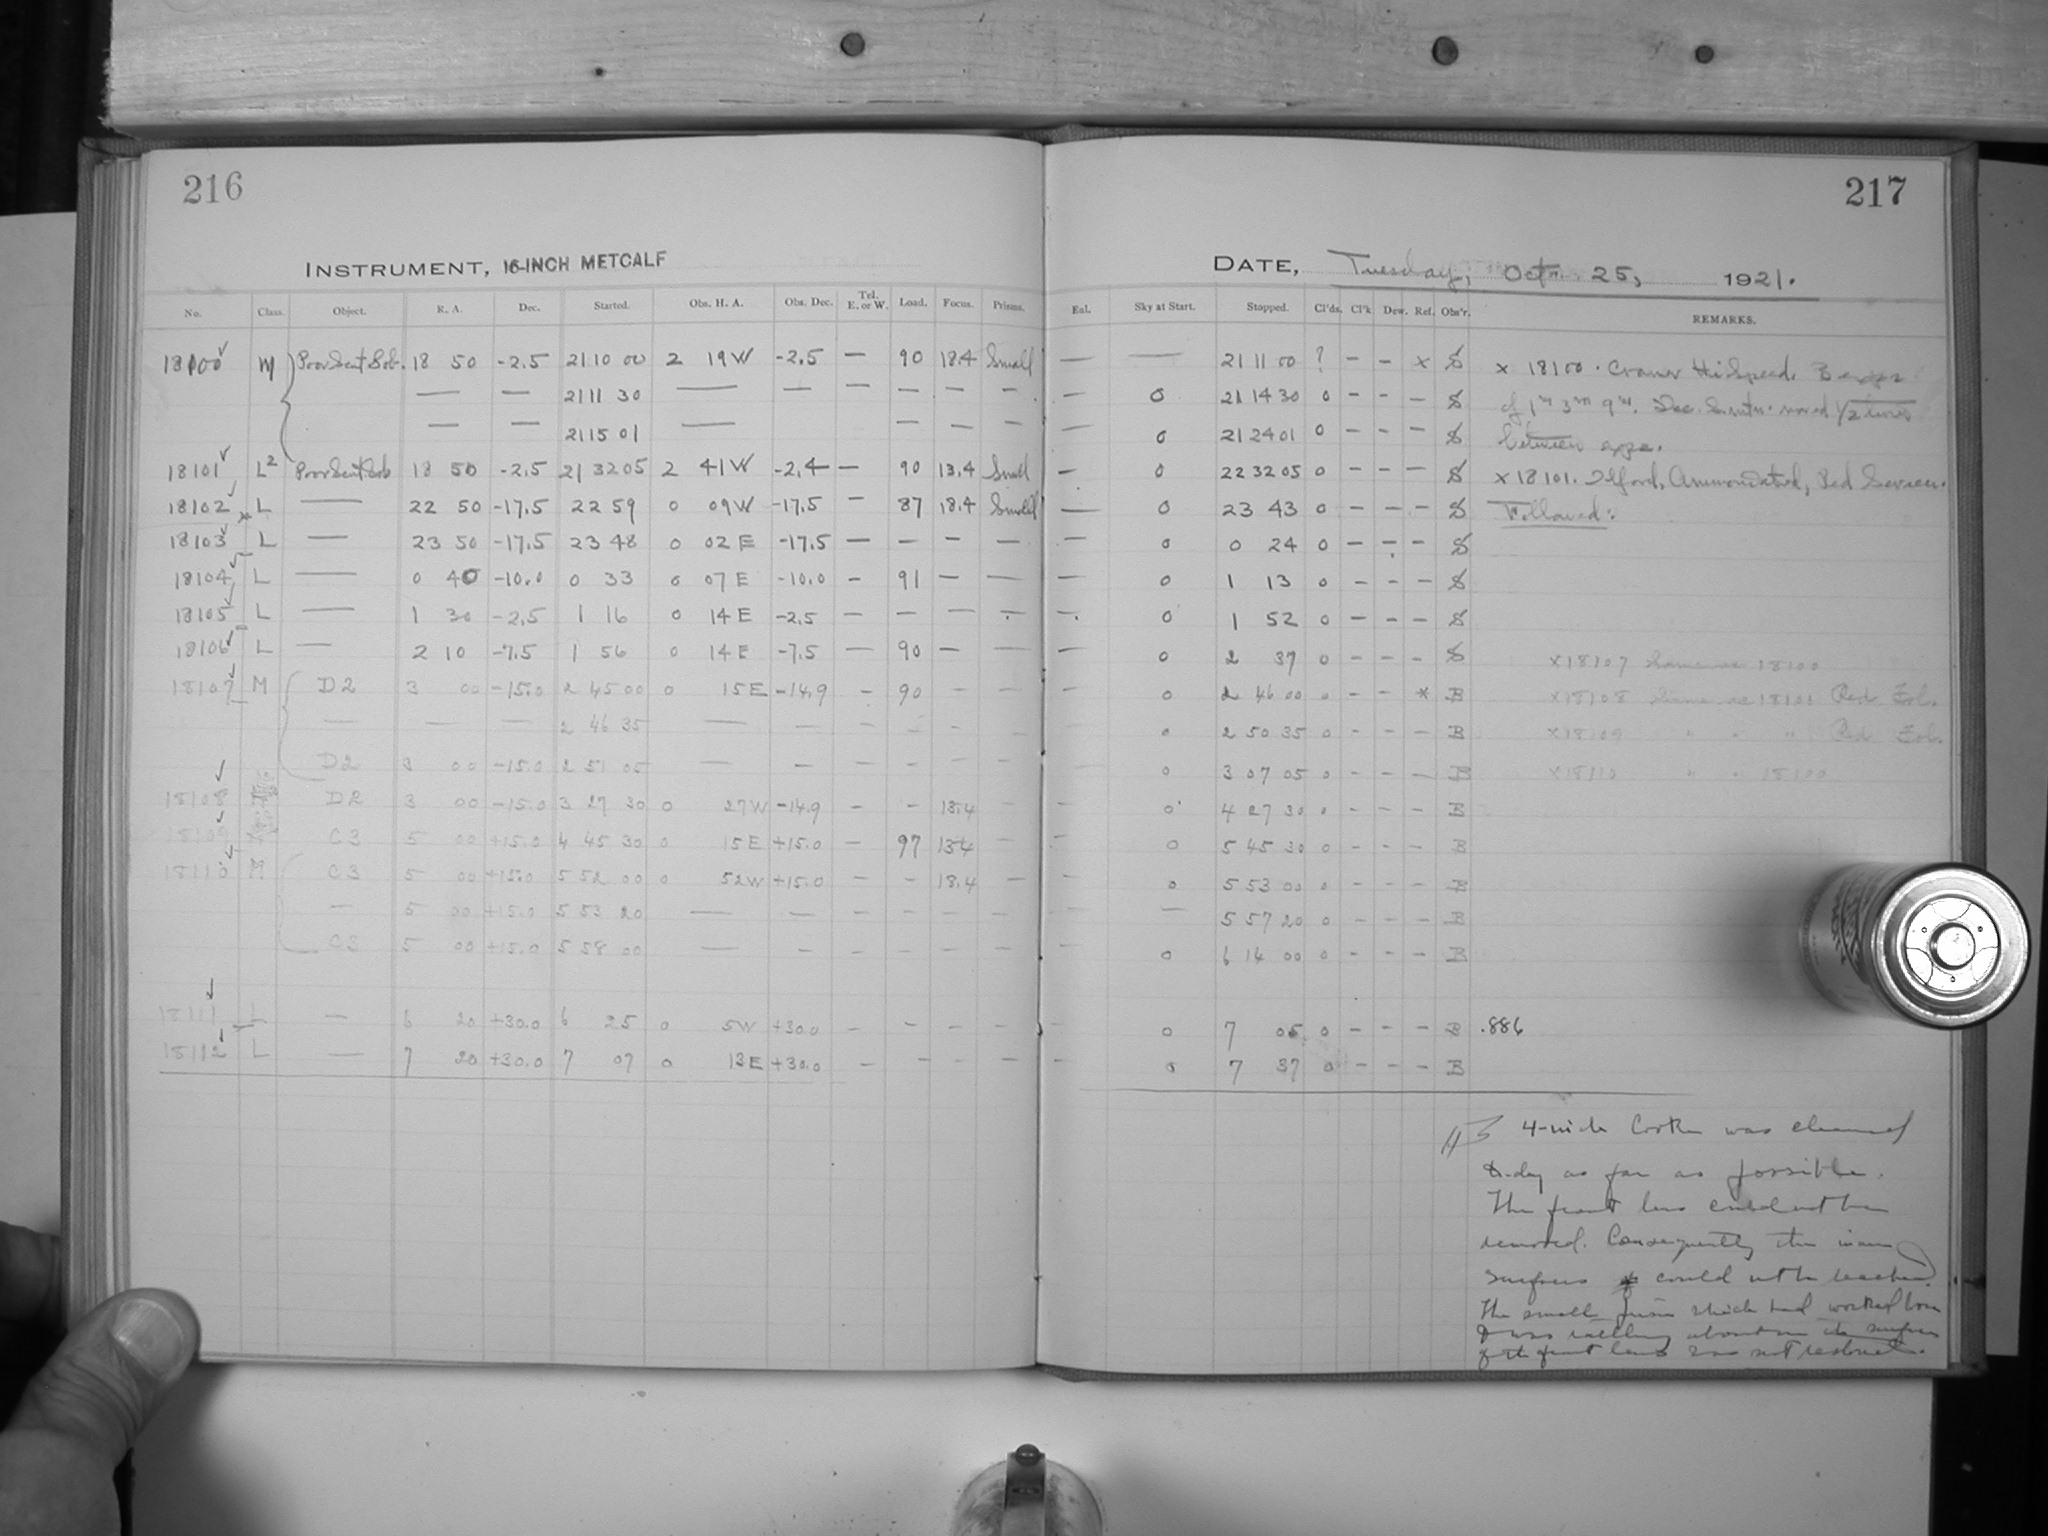 216
217
INSTRUMENT, 16-INCH METCALF
DATE, Tuesday, Oct. 25, 1921.
No. Class. Object. R. A. Dec. Started. Obs. H. A. Obs. Dec. Tel. E. or W. Load. Focus. Prisms. Eul. Sky at Start. Stopped. Cl'ds. Cl'k Dew. Ref. Obs'r. REMARKS.
18100 M 18 50 -2.5 21 10 00 2 19 W -2.5 — 90 18.4 Small — — 21 11 00 ? - - x S x 18100. Cramer HiSpeed. 3
— — 21 11 30 — — — — — — — 0 21 14 30 0 - - - S of 1m 3m 9m. Dec. moved 1/2
— — 21 15 01 — — — — — 0 21 24 01 0 - - - S between exps.
18101 L2 18 50 -2.5 21 32 05 2 41 W -2.4 — 90 13.4 Small — 0 22 32 05 0 - - - S x 18101. Ilford, Ammoniated, Red Screen.
18102 L — 22 50 -17.5 22 59 0 09 W -17.5 — 87 18.4 Small — 0 23 43 0 - - - S Followed:
18103 L — 23 50 -17.5 23 48 0 02 E -17.5 — — — — — 0 0 24 0 - - - S
18104 L — 0 40 -10.0 0 33 0 07 E -10.0 - 91 — — — 0 1 13 0 - - - S
18105 L — 1 30 -2.5 1 16 0 14 E -2.5 — — — — — 0 1 52 0 - - - S
18106 L — 2 10 -7.5 1 56 0 14 E -7.5 — 90 — — — 0 2 37 0 - - - S x18107 Same as 18100
18107 M D2 3 00 -15.0 2 45 00 0 15 E -14.9 - 90 — — — 0 2 46 00 0 - - * B x18108 Same as 18101 Red
— — — 2 46 35 — — — — — — — 0 2 50 35 0 - - - B x18109 " " " Red
D2 3 00 -15.0 2 51 05 — — — — — — — 0 3 07 05 0 - - - B x18110 " " 18100
18108 D2 3 00 -15.0 3 27 30 0 27 W -14.9 - - 13.4 — — 0 4 27 30 0 - - - B
18109 C3 5 00 +15.0 4 45 30 0 15 E +15.0 — 97 13.4 — — 0 5 45 30 0 - - - B
18110 M C3 5 00 +15.0 5 52 00 0 52 W +15.0 — - 18.4 — — 0 5 53 00 0 - - - B
— 5 00 +15.0 5 53 20 — — — — — — — — 5 57 20 0 - - - B
C3 5 00 +15.0 5 58 00 — — — — — — — 0 6 14 00 0 - - - B
18111 L — 6 20 +30.0 6 25 0 5 W +30.0 — — — — — 0 7 05 0 - - - B .886
18112 L — 7 20 +30.0 7 07 0 13 E +30.0 — — — — — 0 7 37 0 - - - B
4-inch Cooke was cleaned
to-day as far as possible.
The front lens could not be
removed. Consequently the inner
surfaces could not be reached.
The small prism which had worked loose
& was rattling about on the surface
of the front lens was not replaced.